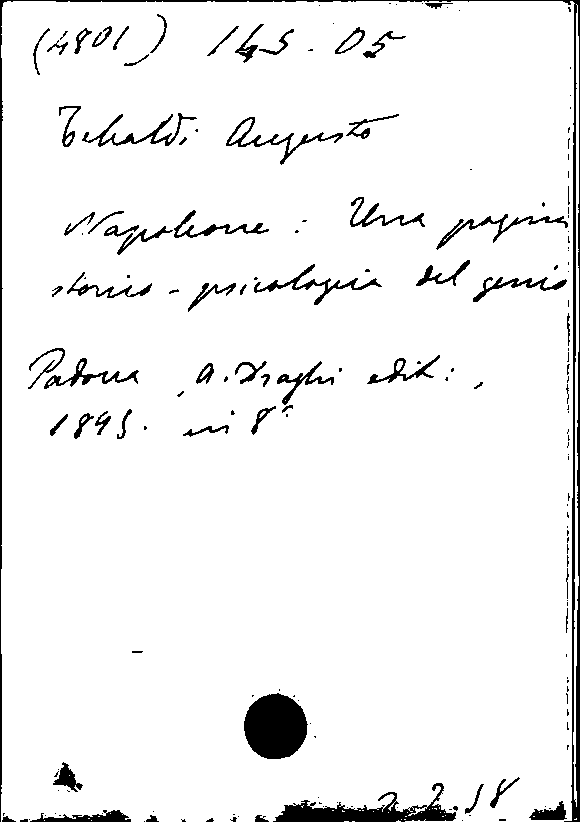 (4801) 145.05
Tebaldi Augusto
Napoleone : Una pagina
storico - psicologica del genio
Padova, A. Draghi edit :,
1895. in 8°
2.2.58